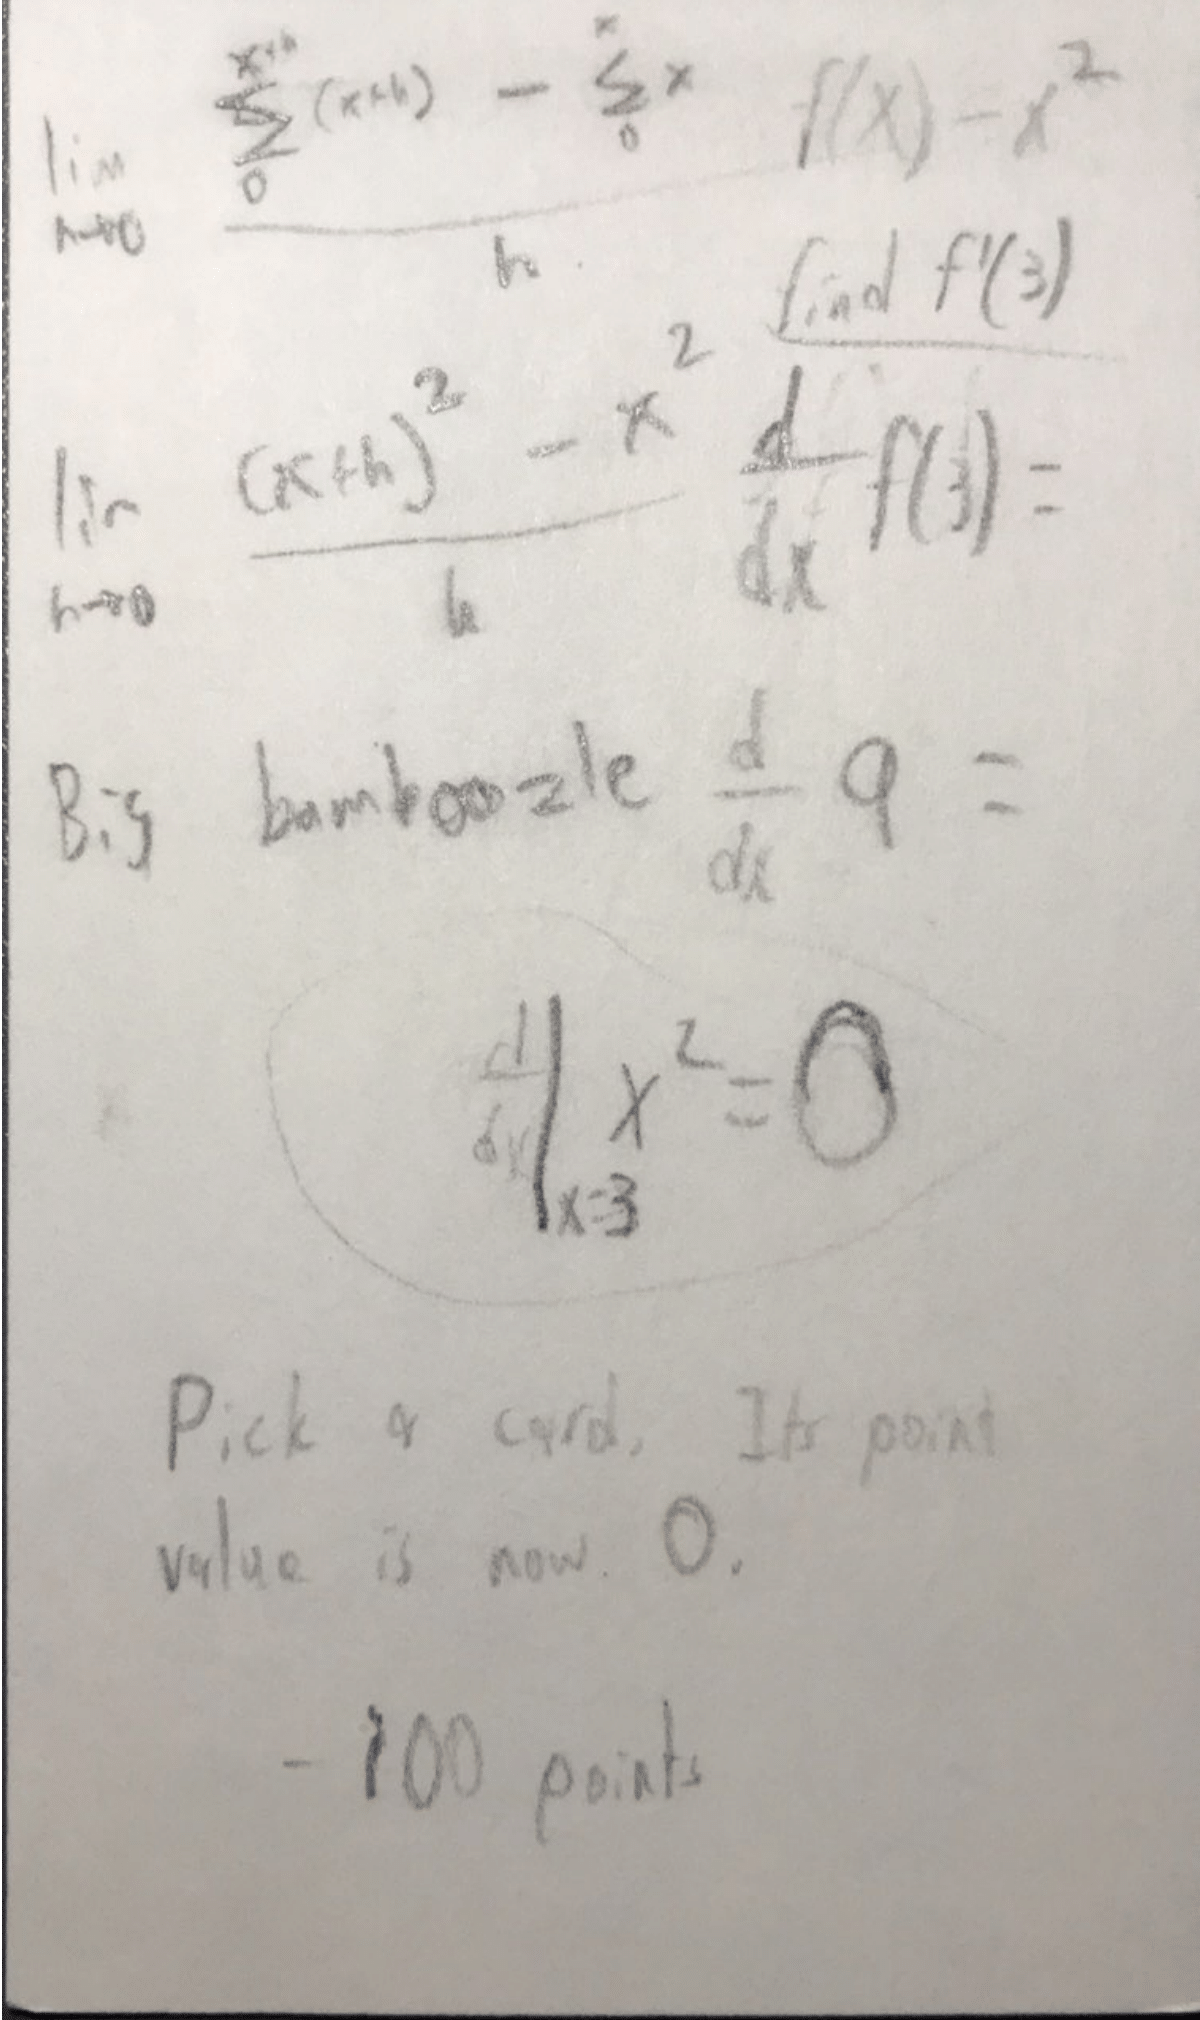 x+h x
lim ∑ (x+h) − ∑ x
0 0
h→0 h
f(x) − x²
find f'(3)
lim (x+h)² − x²
h→0 h
d/dx f(3) =
Big bamboozle d/dx 9 =
d/dx |x=3 x² = 0
Pick a card. Its point
value is now 0.
-100 points